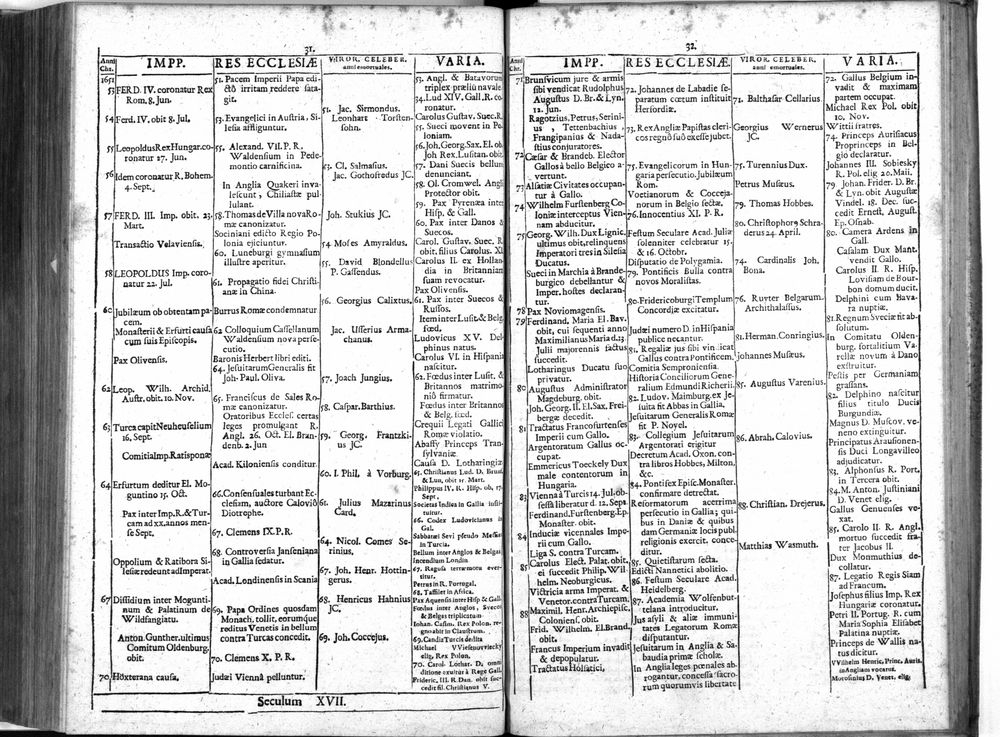 31.
Anni Chr.
IMPP.
1651
53 FERD. IV. coronatur Rex
Rom. 8. Jun.
54 Ferd. IV. obit 8. Jul.
55 Leopoldus Rex Hungar. co-
ronatur 27. Jun.
56 Idem coronatur R. Bohem.
4. Sept.
57 FERD. III. Imp. obit. 23.
Mart.
Transactio Velaviensis.
58 LEOPOLDUS Imp. coro-
natur 22. Jul.
60 Jubilæum ob obtentam pa-
cem.
Monasterii & Erfurti causa
cum suis Episcopis.
Pax Olivensis.
62 Leop. Wilh. Archid.
Austr. obit. 10. Nov.
63 Turca capit Neuheuselium
16. Sept.
Comitia Imp. Ratisponæ
64 Erfurtum deditur El. Mo-
guntino 15. Oct.
Pax inter Imp. R. & Tur-
cam ad xx. annos men-
se Sept.
Oppolium & Ratibora Si-
lesiæ redeunt ad Imperat.
67 Dissidium inter Mogunti-
num & Palatinum de
Wildfangiatu.
Anton. Gunther. ultimus
Comitum Oldenburg.
obit.
70 Höxterana causa.
RES ECCLESIÆ
51. Pacem Imperii Papa edi-
cto irritam reddere sata-
git.
53. Evangelici in Austria, Si-
lesia affliguntur.
55. Alexand. VII. P. R.
Waldensium in Pede-
montio carnificina.
In Anglia Quakeri inva-
lescunt, Chiliastæ pul-
lulant.
58. Thomas de Villa nova Ro-
mæ canonizatur.
Sociniani edicto Regio Po-
lonia ejiciuntur.
60. Luneburgi gymnasium
illustre aperitur.
61. Propagatio fidei Christi-
anæ in China.
Burrus Romæ condemnatur
62 Colloquium Cassellanum
Waldensium nova perse-
cutio.
Baronis Herbert libri editi.
64. Jesuitarum Generalis fit
Joh. Paul. Oliva.
65. Franciscus de Sales Ro-
mæ canonizatur.
Oratoribus Eccles. certas
leges promulgant R.
Angl. 26. Oct. El. Bran-
denb. 2. Jun
Acad. Kiloniensis conditur.
66. Consensuales turbant Ec-
clesiam, auctore Calovio
Diotrephe.
67. Clemens IX. P. R.
68. Controversia Janseniana
in Gallia sedatur.
Acad. Londinensis in Scania
69. Papa Ordines quosdam
Monach. tollit, eorumque
reditus Venetis in bellum
contra Turcas concedit.
70. Clemens X. P. R.
Judæi Vienna pelluntur.
VIROR. CELEBER.
anni emortuales.
51. Jac. Sirmondus.
Leonhart Torsten-
sohn.
53. Cl. Salmasius.
Jac. Gothofredus JC.
Joh. Stukius JC.
54 Moses Amyraldus.
55. David Blondellus
P. Gassendus.
56. Georgius Calixtus.
Jac. Usserius Arma-
chanus.
57. Joach Jungius.
58. Caspar. Barthius.
59. Georg. Frantzki-
us JC.
60. I. Phil. à Vorburg.
61. Julius Mazarinus
Card.
64. Nicol. Comes Se-
rinius.
67. Joh. Henr. Hottin-
gerus.
68. Henricus Hahnius
JC.
69. Joh. Coccejus.
VARIA.
53. Angl. & Batavorum
triplex prælium navale.
54. Lud XIV. Gall. R. co-
ronatur.
Carolus Gustav. Suec. R.
55. Sueci movent in Po-
loniam.
56. Joh. Georg. Sax. El. ob.
Joh Rex. Lusitan. obit.
57. Dani Suecis bellum
denunciant.
58. Ol. Cromwel. Angl.
Protector obit.
59. Pax Pyrenæa inter
Hisp. & Gall.
60. Pax inter Danos &
Suecos.
Carol. Gustav. Suec. R.
obit. filius Carolus. XI.
Carolus II. ex Hollan-
dia in Britanniam
suam revocatur.
Pax Olivensis.
61. Pax inter Suecos &
Russos.
Item inter Lusit. & Belg.
fœd.
Ludovicus XV. Del-
phinus natus.
Carolus VI. in Hispania
nascitur.
62. Fœdus inter Lusit. &
Britannos matrimo-
nio firmatur.
Fœdus inter Britannos
& Belg. fœd.
Crequii Legati Gallici
Romæ violatio.
Abaffy Princeps Tran-
sylvaniæ.
Causa D. Lotharingiæ
65. Christianus Lud. D. Bruns.
& Lun. obit 15. Mart.
Philippus IV. R. Hisp. ob. 17.
Sept.
Societas Indica in Gallia insti-
tuitur.
66. Codex Ludovicianus in
Gal.
Sabbatai Sevi pseudo Messias
in Turcia.
Bellum inter Anglos & Belgas.
Incendium Londin.
67. Ragusa terræmotu ever-
titur.
Petrus in R. Portugal.
68. Taffilet in Africa.
Pax Aquensis inter Hisp & Gall.
Fœdus inter Anglos, Suecos
& Belgas triplicatum
Iohan. Casim. Rex Polon. re-
gno abit in Claustrum.
69. Candia Turcis dedita
Michael VViesnouviecky
elig. Rex Polon.
70. Carol. Lothar. D. omni
ditione exuitur à Rege Gall.
Frideric. III. R. Dan. obit suc-
cedit fil. Christianus V.
Seculum XVII.
32.
Anni Chr.
IMPP.
71 Brunsvicum jure & armis
sibi vendicat Rudolphus
Augustus D. Br. & Lyn.
12. Jun.
Ragotzius, Petrus, Serini-
us, Tettenbachius,
Frangipanius & Nada-
stius conjuratores.
72 Cæsar & Brandeb. Elector
Gallos à bello Belgico a-
vertunt.
73 Alsatiæ Civitates occupan-
tur à Gallo.
74 Wilhelm Furstenberg Co-
loniæ interceptus Vien-
nam abducitur.
75 Georg. Wilh. Dux Lignic.
ultimus obit, relinquens
Imperatori tres in Silesia
Ducatus.
Sueci in Marchia à Brande-
burgico debellantur &
Imper. hostes declaran-
tur.
78 Pax Noviomagensis.
79 Ferdinand. Maria El. Bav.
obit, cui sequenti anno
Maximilianus Maria d. 13.
Julii majorennis factus
succedit.
Lotharingus Ducatu suo
privatur.
80 Augustus Administrator
Magdeburg. obit.
Joh. Georg. II. El. Sax. Frei-
bergæ decedit.
81 Tractatus Francofurtenses
Imperii cum Gallo.
Argentoratum Gallus oc-
cupat.
Emmericus Toeckely Dux
male contentorum in
Hungaria.
83 Vienna à Turcis 14. Jul. ob-
sessa liberatur d. 12. Sept.
Ferdinand. Furstenberg. Ep.
Monaster. obit.
84 Induciæ vicennales Impe-
rii cum Gallo.
Liga S. contra Turcam.
85 Carolus Elect. Palat. obit,
ei succedit Philip. Wil-
helm. Neoburgicus.
Victricia arma Imperat. &
Venetor. contra Turcam.
88 Maximil. Henr. Archiepisc.
Coloniens. obit.
Frid. Wilhelm. El. Brand.
obit.
Francus Imperium invadit
& depopulatur.
Tractatus Holsatici.
RES ECCLESIÆ.
72. Johannes de Labadie se-
paratum cœtum instituit
Herfordiæ.
73. Rex Angliæ Papistas cleri-
cos regno suo excesse jubet.
75. Evangelicorum in Hun-
garia persecutio. Jubilæum
Rom.
Voetianorum & Cocceja-
norum in Belgio sectæ.
76. Innocentius XI. P. R.
Festum Seculare Acad. Juliæ
solenniter celebratur 15.
& 16. Octobr.
Disputatio de Polygamia.
79. Pontificis Bulla contra
novos Moralistas.
80. Fridericoburgi Templum
Concordiæ excitatur.
Judæi numero D. in Hispania
publice necantur.
81. Regaliæ jus sibi vindicat
Gallus contra Pontificem.
Comitia Semproniensia.
Historia Conciliorum Gene-
ralium Edmundi Richerii.
82. Ludov. Maimburg. ex Je-
suita fit Abbas in Gallia.
Jesuitarum Generalis Romæ
fit P. Noyel.
83. Collegium Jesuitarum
Argentorati erigitur
Decretum Acad. Oxon. con-
tra libros Hobbes, Milton.
&c.
84. Pontifex Episc. Monaster.
confirmare detrectat.
Reformatorum acerrima
persecutio in Gallia; qui-
bus in Daniæ & quibus
dam Germaniæ locis publ.
religionis exercit. conce-
ditur.
85. Quietistarum secta.
Edicti Nannetici abolitio.
86. Festum Seculare Acad.
Heidelberg.
87. Academia Wolfenbut-
telana introducitur.
Jus asyli & aliæ immuni-
tates Legatorum Romæ
disputantur.
Jesuitarum in Anglia & Sa-
baudia primæ scholæ.
In Anglia leges pœnales ab-
rogantur, concessa sacro-
rum quorumvis libertate
VIROR. CELEBER.
anni emortuales.
71. Balthasar Cellarius.
Georgius Wernerus
JC.
75. Turennius Dux.
Petrus Musæus.
79. Thomas Hobbes.
80. Christophorg Schra-
derus 24. April.
74. Cardinalis Joh.
Bona.
76. Ruyter Belgarum.
Archithalassus.
81. Herman. Conringius.
Johannes Musæus.
85. Augustus Varenius.
86. Abrah. Calovius.
88. Christian. Drejerus.
Matthias Wasmuth.
VARIA.
72. Gallus Belgium in-
vadit & maximam
partem occupat.
Michael Rex Pol. obit
10. Nov.
Wittii fratres.
74. Princeps Aurisiacus
Proprinceps in Bel-
gio declaratur.
Johannes III. Sobiesky
R. Pol. elig 20. Maii.
79. Johan. Frider. D. Br.
& Lyn. obit Augustæ
Vindel. 18. Dec. suc-
cedit Ernest. August.
Ep. Osnab.
80. Camera Ardens in
Gall.
Casalam Dux Mant.
vendit Gallo.
Carolus II. R. Hisp.
Lovisam de Bour-
bon domum ducit.
Delphini cum Bava-
ra nuptiæ.
81. Regnum Sveciæ fit ab-
solutum.
In Comitatu Olden-
burg. fortalitium Va-
rellæ novum à Dano
exstruitur.
Pestis per Germaniam
grassans.
82. Delphino nascitur
filius titulo Ducis
Burgundiæ.
Magnus D. Muscov. ve-
neno extinguitur.
Principatus Arausionen-
sis Duci Longavilleo
adjudicatur.
83. Alphonsus R. Port.
in Tercera obit.
84. M. Anton. Justiniani
D. Venet elig.
Gallus Genuenses ve-
xat.
85. Carolo II. R. Angl.
mortuo succedit fra-
ter Jacobus II.
Dux Monmuthius de-
collatur.
87. Legatio Regis Siam
ad Francum.
Josephus filius Imp. Rex
Hungariæ coronatur.
Petri II. Portug. R. cum
Maria Sophia Elisabet
Palatina nuptiæ.
Princeps de Wallis na-
tus dicitur.
VVilhelm Henric. Princ. Auris.
in Angliam vocatus.
Morosinius D. Venet. elig.